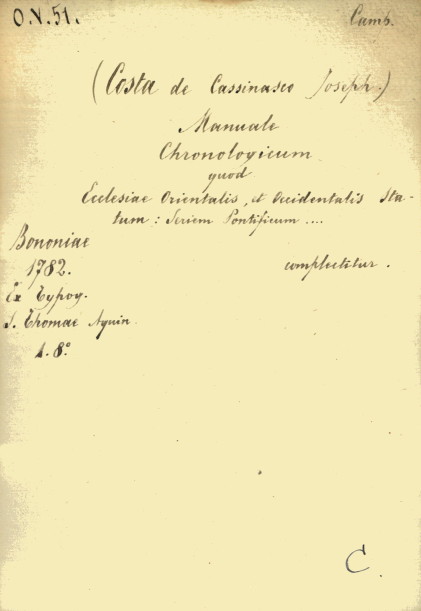 O.V.51. Camb.
(Costa de Cassinasco Joseph.)
Manuale
Chronologicum
quod
Ecclesiae Orientalis, et Occidentalis Sta-
tum: Seriem Pontificum ....
complectitur.
Bononiae
1782.
Ex Typog.
S. Thomae Aquin.
1. 8.º
C.